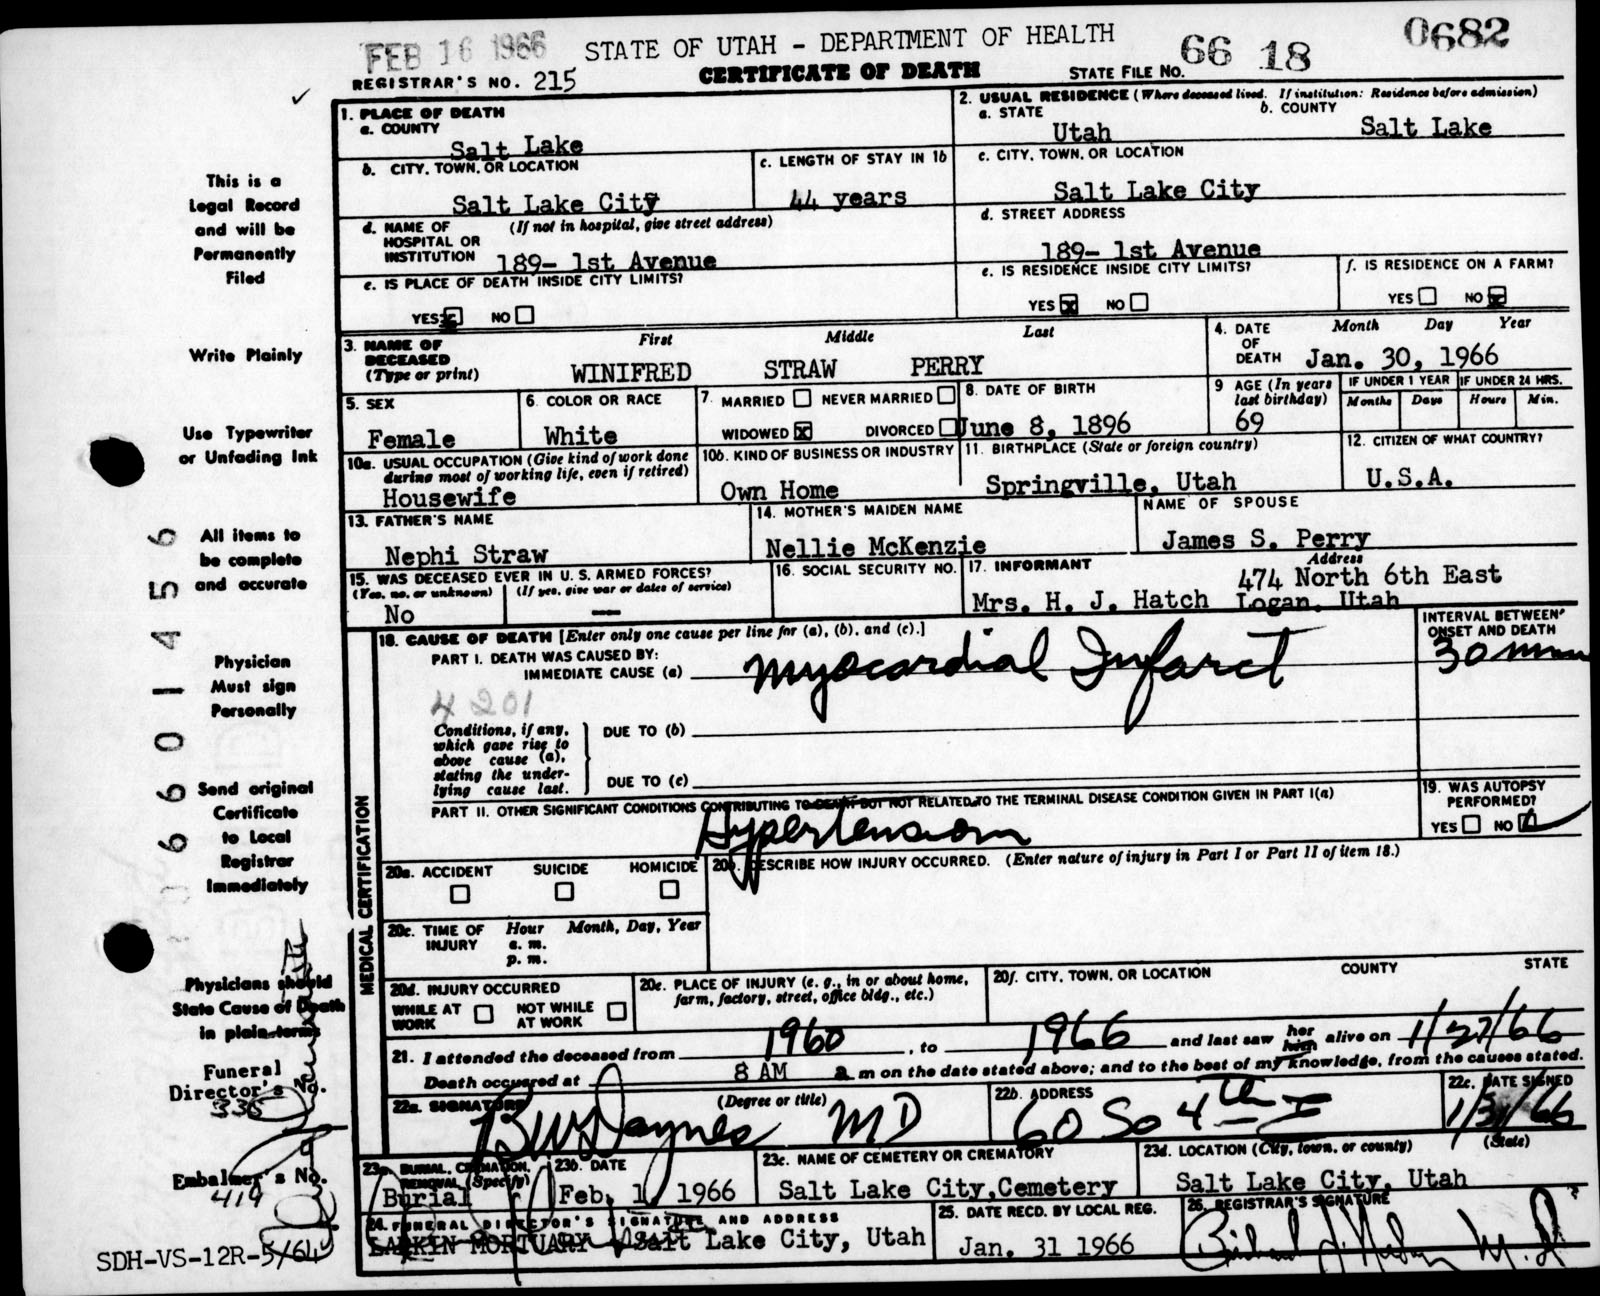 FEB 16 1966 STATE OF UTAH - DEPARTMENT OF HEALTH 66 18 0682
REGISTRAR'S NO. 215 CERTIFICATE OF DEATH STATE FILE NO.
1. PLACE OF DEATH
a. COUNTY
Salt Lake
2. USUAL RESIDENCE (Where deceased lived. If institution: Residence before admission)
a. STATE b. COUNTY
Utah Salt Lake
b. CITY, TOWN, OR LOCATION
Salt Lake City
c. LENGTH OF STAY IN 1b
44 years
c. CITY, TOWN, OR LOCATION
Salt Lake City
d. NAME OF (If not in hospital, give street address)
HOSPITAL OR
INSTITUTION 189- 1st Avenue
d. STREET ADDRESS
189- 1st Avenue
e. IS PLACE OF DEATH INSIDE CITY LIMITS?
YES x NO
e. IS RESIDENCE INSIDE CITY LIMITS?
YES x NO
f. IS RESIDENCE ON A FARM?
YES NO x
3. NAME OF First Middle Last
DECEASED
(Type or print) WINIFRED STRAW PERRY
4. DATE Month Day Year
OF
DEATH Jan. 30, 1966
5. SEX
Female
6. COLOR OR RACE
White
7. MARRIED NEVER MARRIED
WIDOWED x DIVORCED
8. DATE OF BIRTH
June 8, 1896
9 AGE (In years
last birthday)
69
IF UNDER 1 YEAR IF UNDER 24 HRS.
Months Days Hours Min.
10a. USUAL OCCUPATION (Give kind of work done
during most of working life, even if retired)
Housewife
10b. KIND OF BUSINESS OR INDUSTRY
Own Home
11. BIRTHPLACE (State or foreign country)
Springville, Utah
12. CITIZEN OF WHAT COUNTRY?
U.S.A.
13. FATHER'S NAME
Nephi Straw
14. MOTHER'S MAIDEN NAME
Nellie McKenzie
NAME OF SPOUSE
James S. Perry
15. WAS DECEASED EVER IN U. S. ARMED FORCES?
(Yes, no, or unknown) (If yes, give war or dates of service)
No —
16. SOCIAL SECURITY NO.
17. INFORMANT Address
474 North 6th East
Mrs. H. J. Hatch Logan, Utah
18. CAUSE OF DEATH [Enter only one cause per line for (a), (b), and (c).]
INTERVAL BETWEEN
ONSET AND DEATH
PART I. DEATH WAS CAUSED BY:
IMMEDIATE CAUSE (a) Myocardial Infarct 30 min
4 201
Conditions, if any,
which gave rise to
above cause (a),
stating the under-
lying cause last.
DUE TO (b)
DUE TO (c)
PART II. OTHER SIGNIFICANT CONDITIONS CONTRIBUTING TO DEATH BUT NOT RELATED TO THE TERMINAL DISEASE CONDITION GIVEN IN PART I(a)
Hypertension
19. WAS AUTOPSY
PERFORMED?
YES NO
MEDICAL CERTIFICATION
20a. ACCIDENT SUICIDE HOMICIDE
20b. DESCRIBE HOW INJURY OCCURRED. (Enter nature of injury in Part I or Part II of item 18.)
20c. TIME OF Hour Month, Day, Year
INJURY a. m.
p. m.
20d. INJURY OCCURRED
WHILE AT NOT WHILE
WORK AT WORK
20e. PLACE OF INJURY (e. g., in or about home,
farm, factory, street, office bldg., etc.)
20f. CITY, TOWN, OR LOCATION COUNTY STATE
21. I attended the deceased from 1960, to 1966 and last saw her him alive on 1/27/66
Death occurred at 8 AM a m on the date stated above; and to the best of my knowledge, from the causes stated.
22a. SIGNATURE (Degree or title)
MD
22b. ADDRESS
60 So 4th E
22c. DATE SIGNED
1/31/66
23a. BURIAL, CREMATION,
REMOVAL (Specify)
Burial
23b. DATE
Feb. 1, 1966
23c. NAME OF CEMETERY OR CREMATORY
Salt Lake City, Cemetery
23d. LOCATION (City, town, or county) (State)
Salt Lake City, Utah
24. FUNERAL DIRECTOR'S SIGNATURE AND ADDRESS
LARKIN MORTUARY Salt Lake City, Utah
25. DATE RECD. BY LOCAL REG.
Jan. 31 1966
26. REGISTRAR'S SIGNATURE
M.D.
This is a
Legal Record
and will be
Permanently
Filed
Write Plainly
Use Typewriter
or Unfading Ink
All items to
be complete
and accurate
Physician
Must sign
Personally
Send original
Certificate
to Local
Registrar
Immediately
Physicians should
State Cause of Death
in plain terms
Funeral
Director's No.
335
Embalmer's No.
419
SDH-VS-12R-5/64
6601456